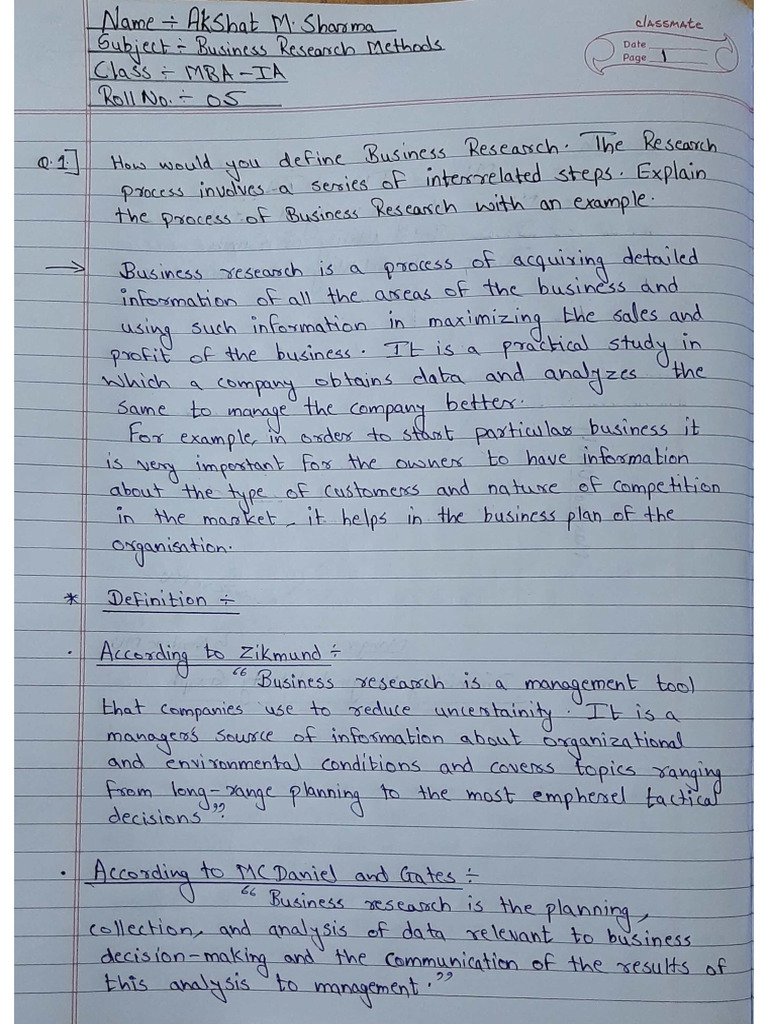 Name ÷ Akshat M. Sharma
Subject ÷ Business Research Methods
Class ÷ MBA-IA
Roll No. ÷ 05
classmate
Date
Page 1
Q.1.] How would you define Business Research. The Research
process involves a series of interrelated steps. Explain
the process of Business Research with an example.
→ Business research is a process of acquiring detailed
information of all the areas of the business and
using such information in maximizing the sales and
profit of the business. It is a practical study in
which a company obtains data and analyzes the
same to manage the company better.
For example, in order to start particular business it
is very important for the owner to have information
about the type of customers and nature of competition
in the market, it helps in the business plan of the
organisation.
* Definition ÷
· According to Zikmund ÷
“Business research is a management tool
that companies use to reduce uncertainity. It is a
managers source of information about organizational
and environmental conditions and covers topics ranging
from long-range planning to the most empherel tactical
decisions”.
· According to MC Daniel and Gates ÷
“Business research is the planning,
collection, and analysis of data relevant to business
decision-making and the communication of the results of
this analysis to management.”